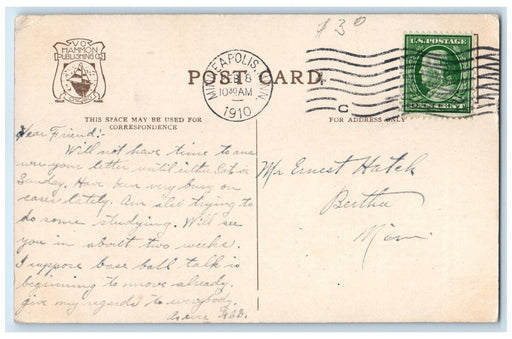 $3.0
V.O.
HAMMON
PUBLISHING CO.
POST CARD.
MINNEAPOLIS, MINN.
FEB 8
10 30 AM
1910
C
U.S. POSTAGE
ONE CENT
THIS SPACE MAY BE USED FOR
CORRESPONDENCE
FOR ADDRESS ONLY
Dear Friend:-
Will not have time to ans
wer your letter until either Sat or
Sunday. Have been very busy on
cases lately. Am also trying to
do some studying. Will see
you in about two weeks.
I suppose base ball talk is
beginning to move already.
Give my regards to everybody.
Mr Ernest Hatch
Bertha
Minn